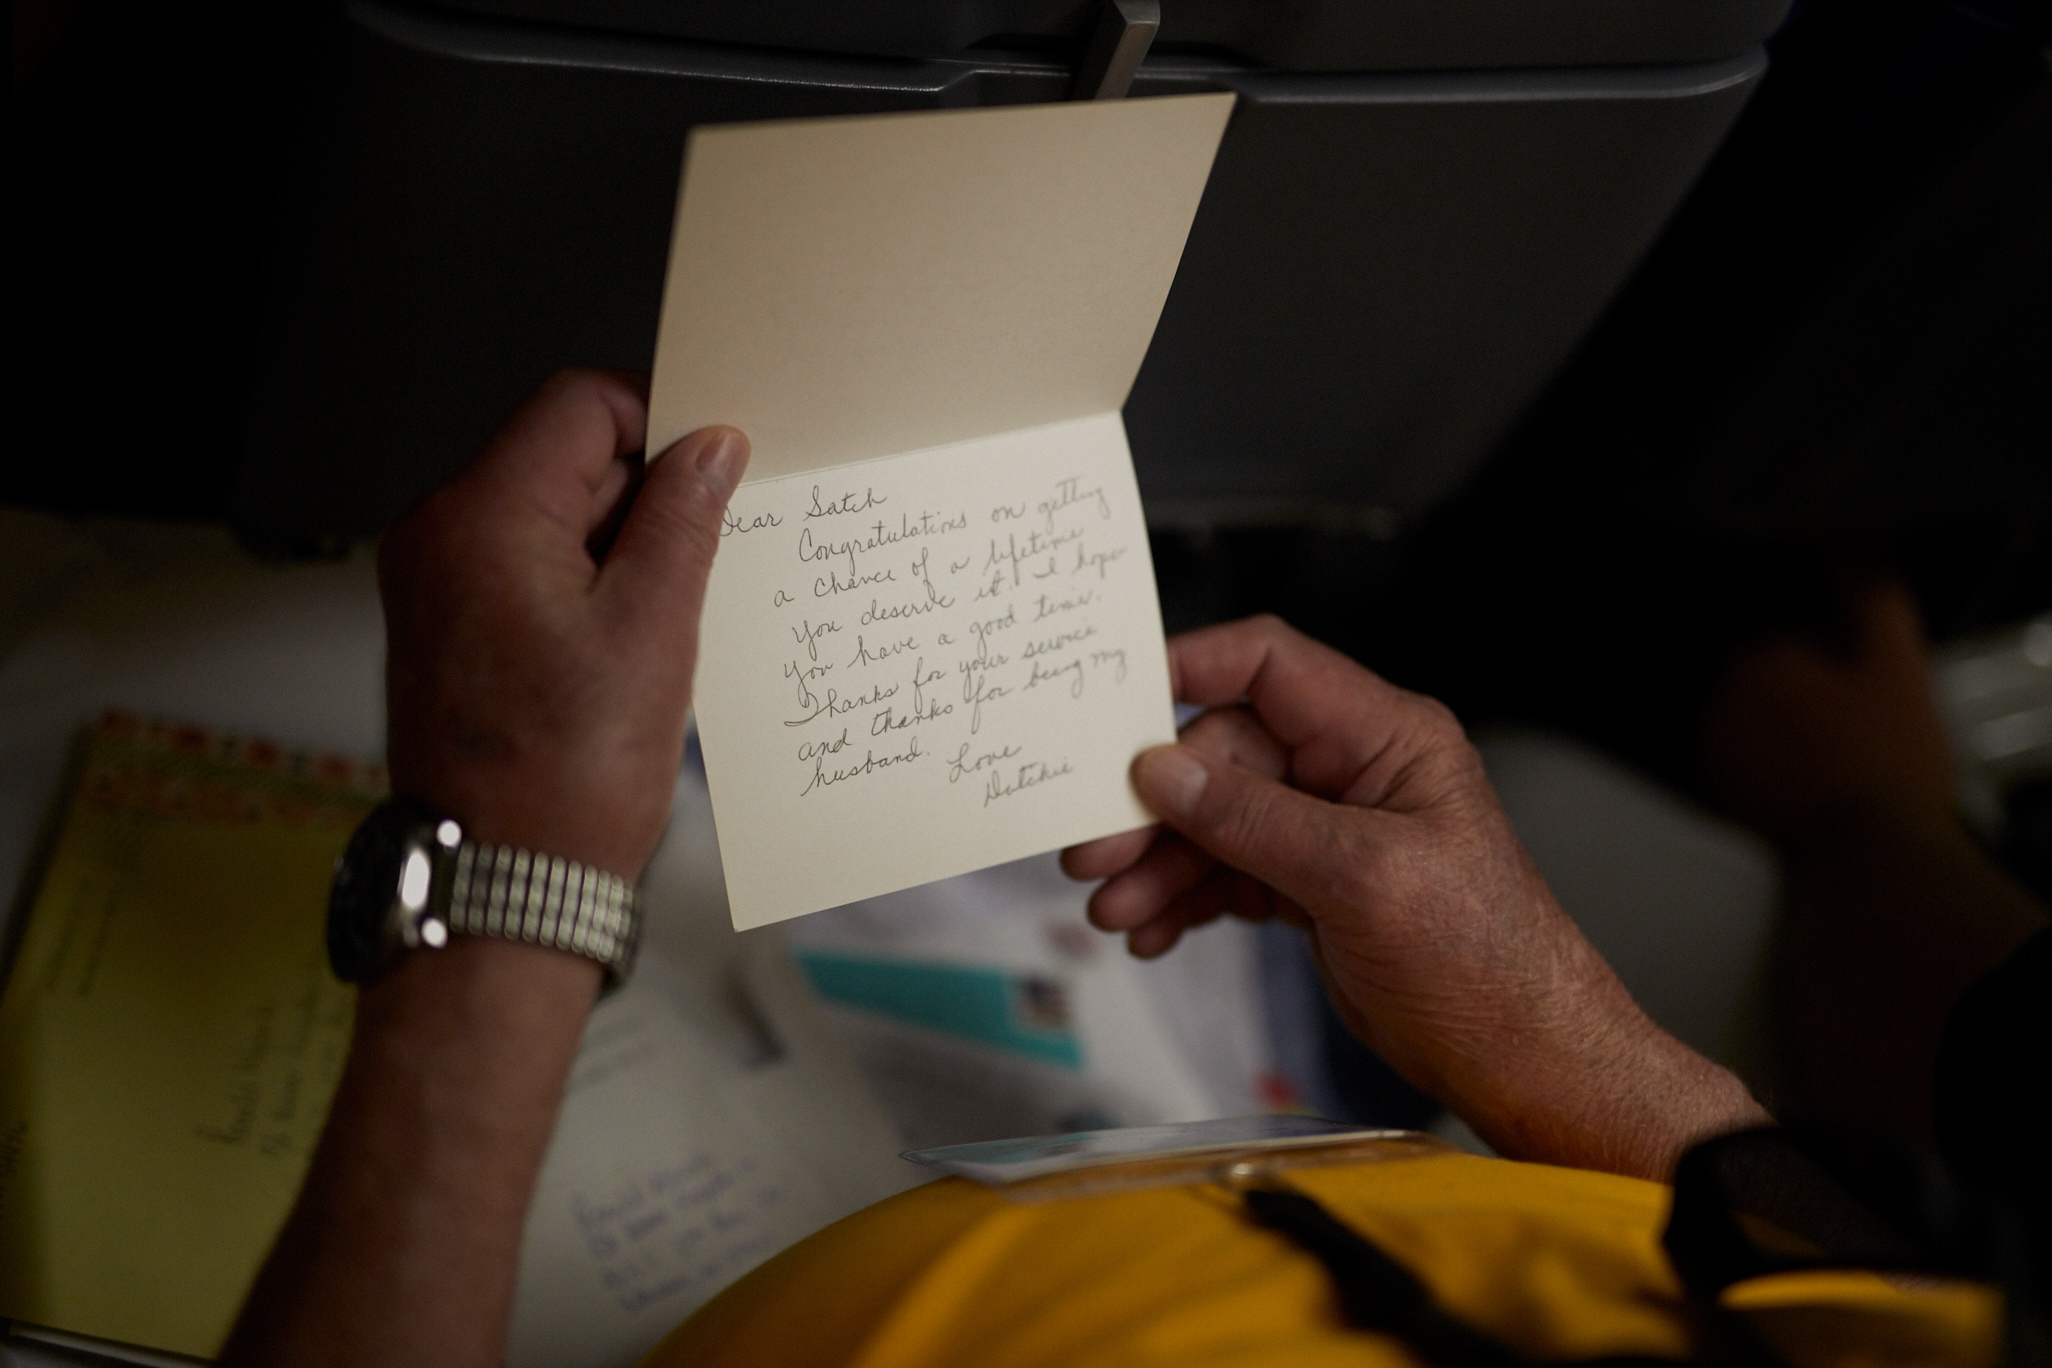 Dear Satch
Congratulations on getting
a chance of a lifetime
you deserve it. I hope
you have a good time.
Thanks for your service
and thanks for being my
husband.
Love
Dutchie